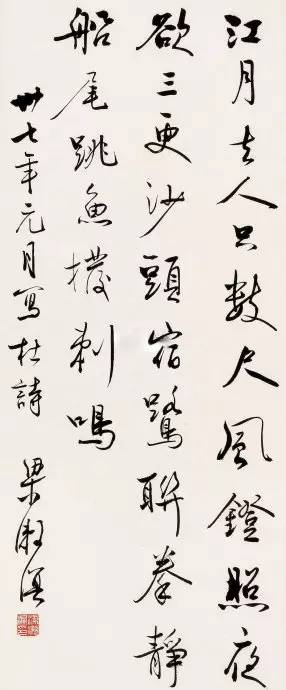 江月去人只數尺風鐙照夜
欲三更沙頭宿鷺聯拳靜
船尾跳魚撥剌鳴
卅七年元月寫杜詩 梁漱溟